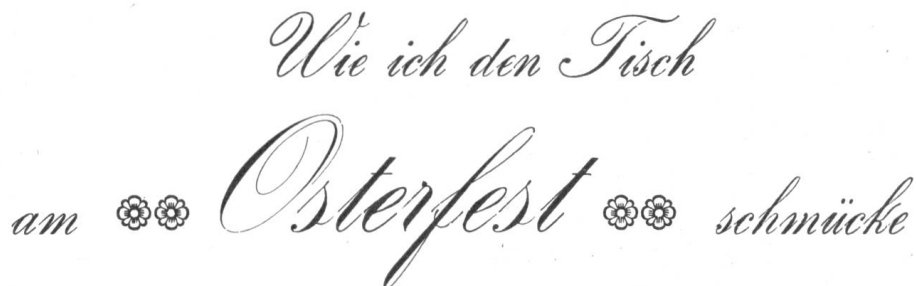 Wie ich den Tisch
am Osterfest schmücke